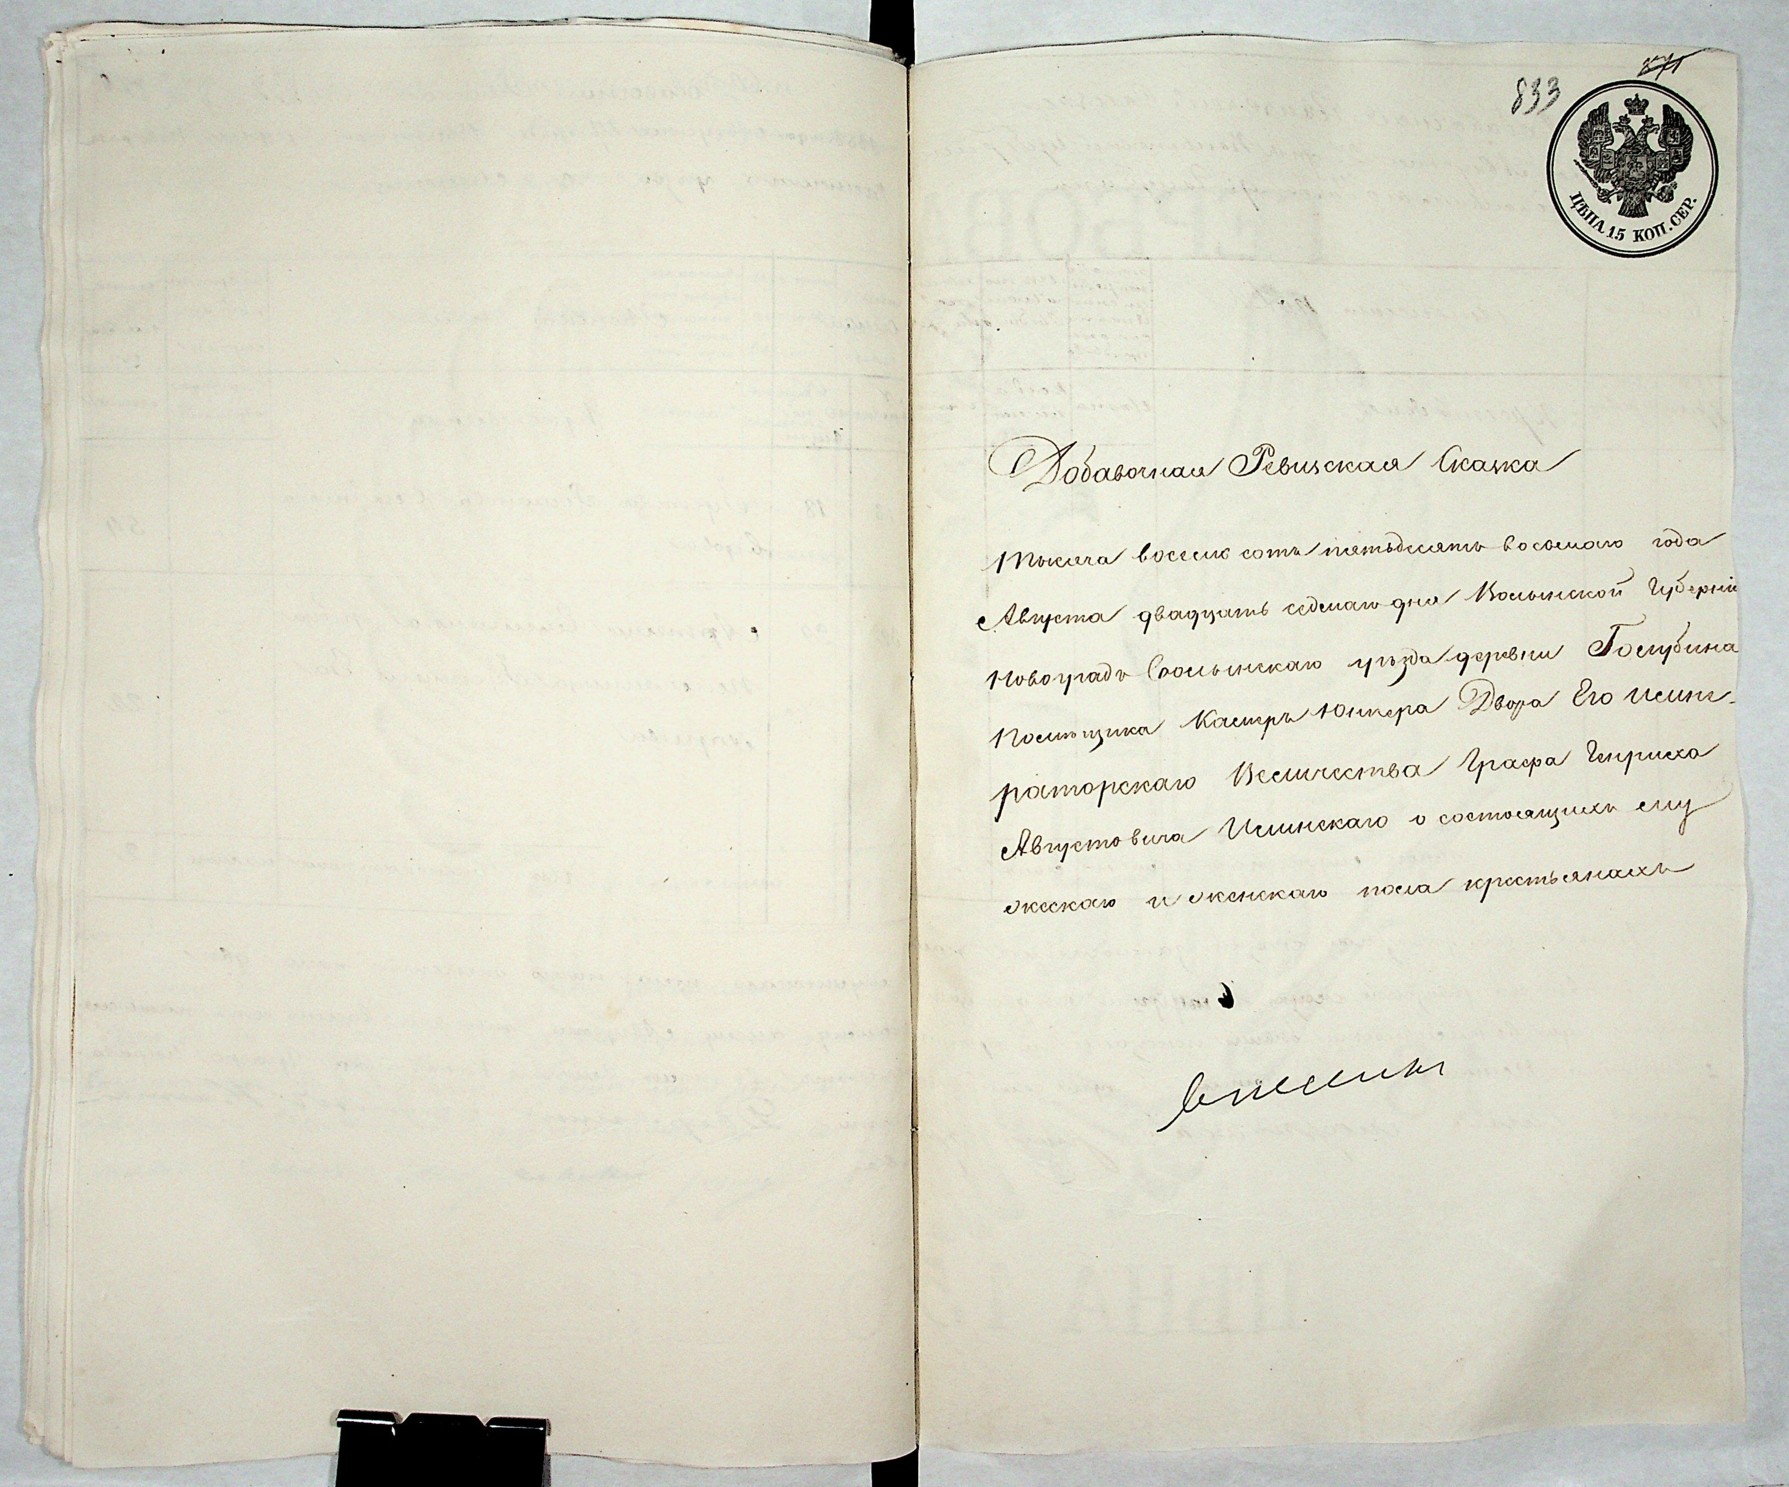 833
ЦѢНА 15 КОП. СЕР.
Добавочная Ревизская Сказка
Тысяча восемь сотъ пятьдесятъ восьмаго года
Августа двадцать седьмаго дня Волынской Губерніи
Новоградъ Волынскаго уѣзда деревни Голубина
Помѣщика Камеръ Юнкера Двора Его Импе-
раторскаго Величества Графа Генриха
Августовича Илинскаго о состоящихъ ему
мужескаго и женскаго пола крестьянахъ